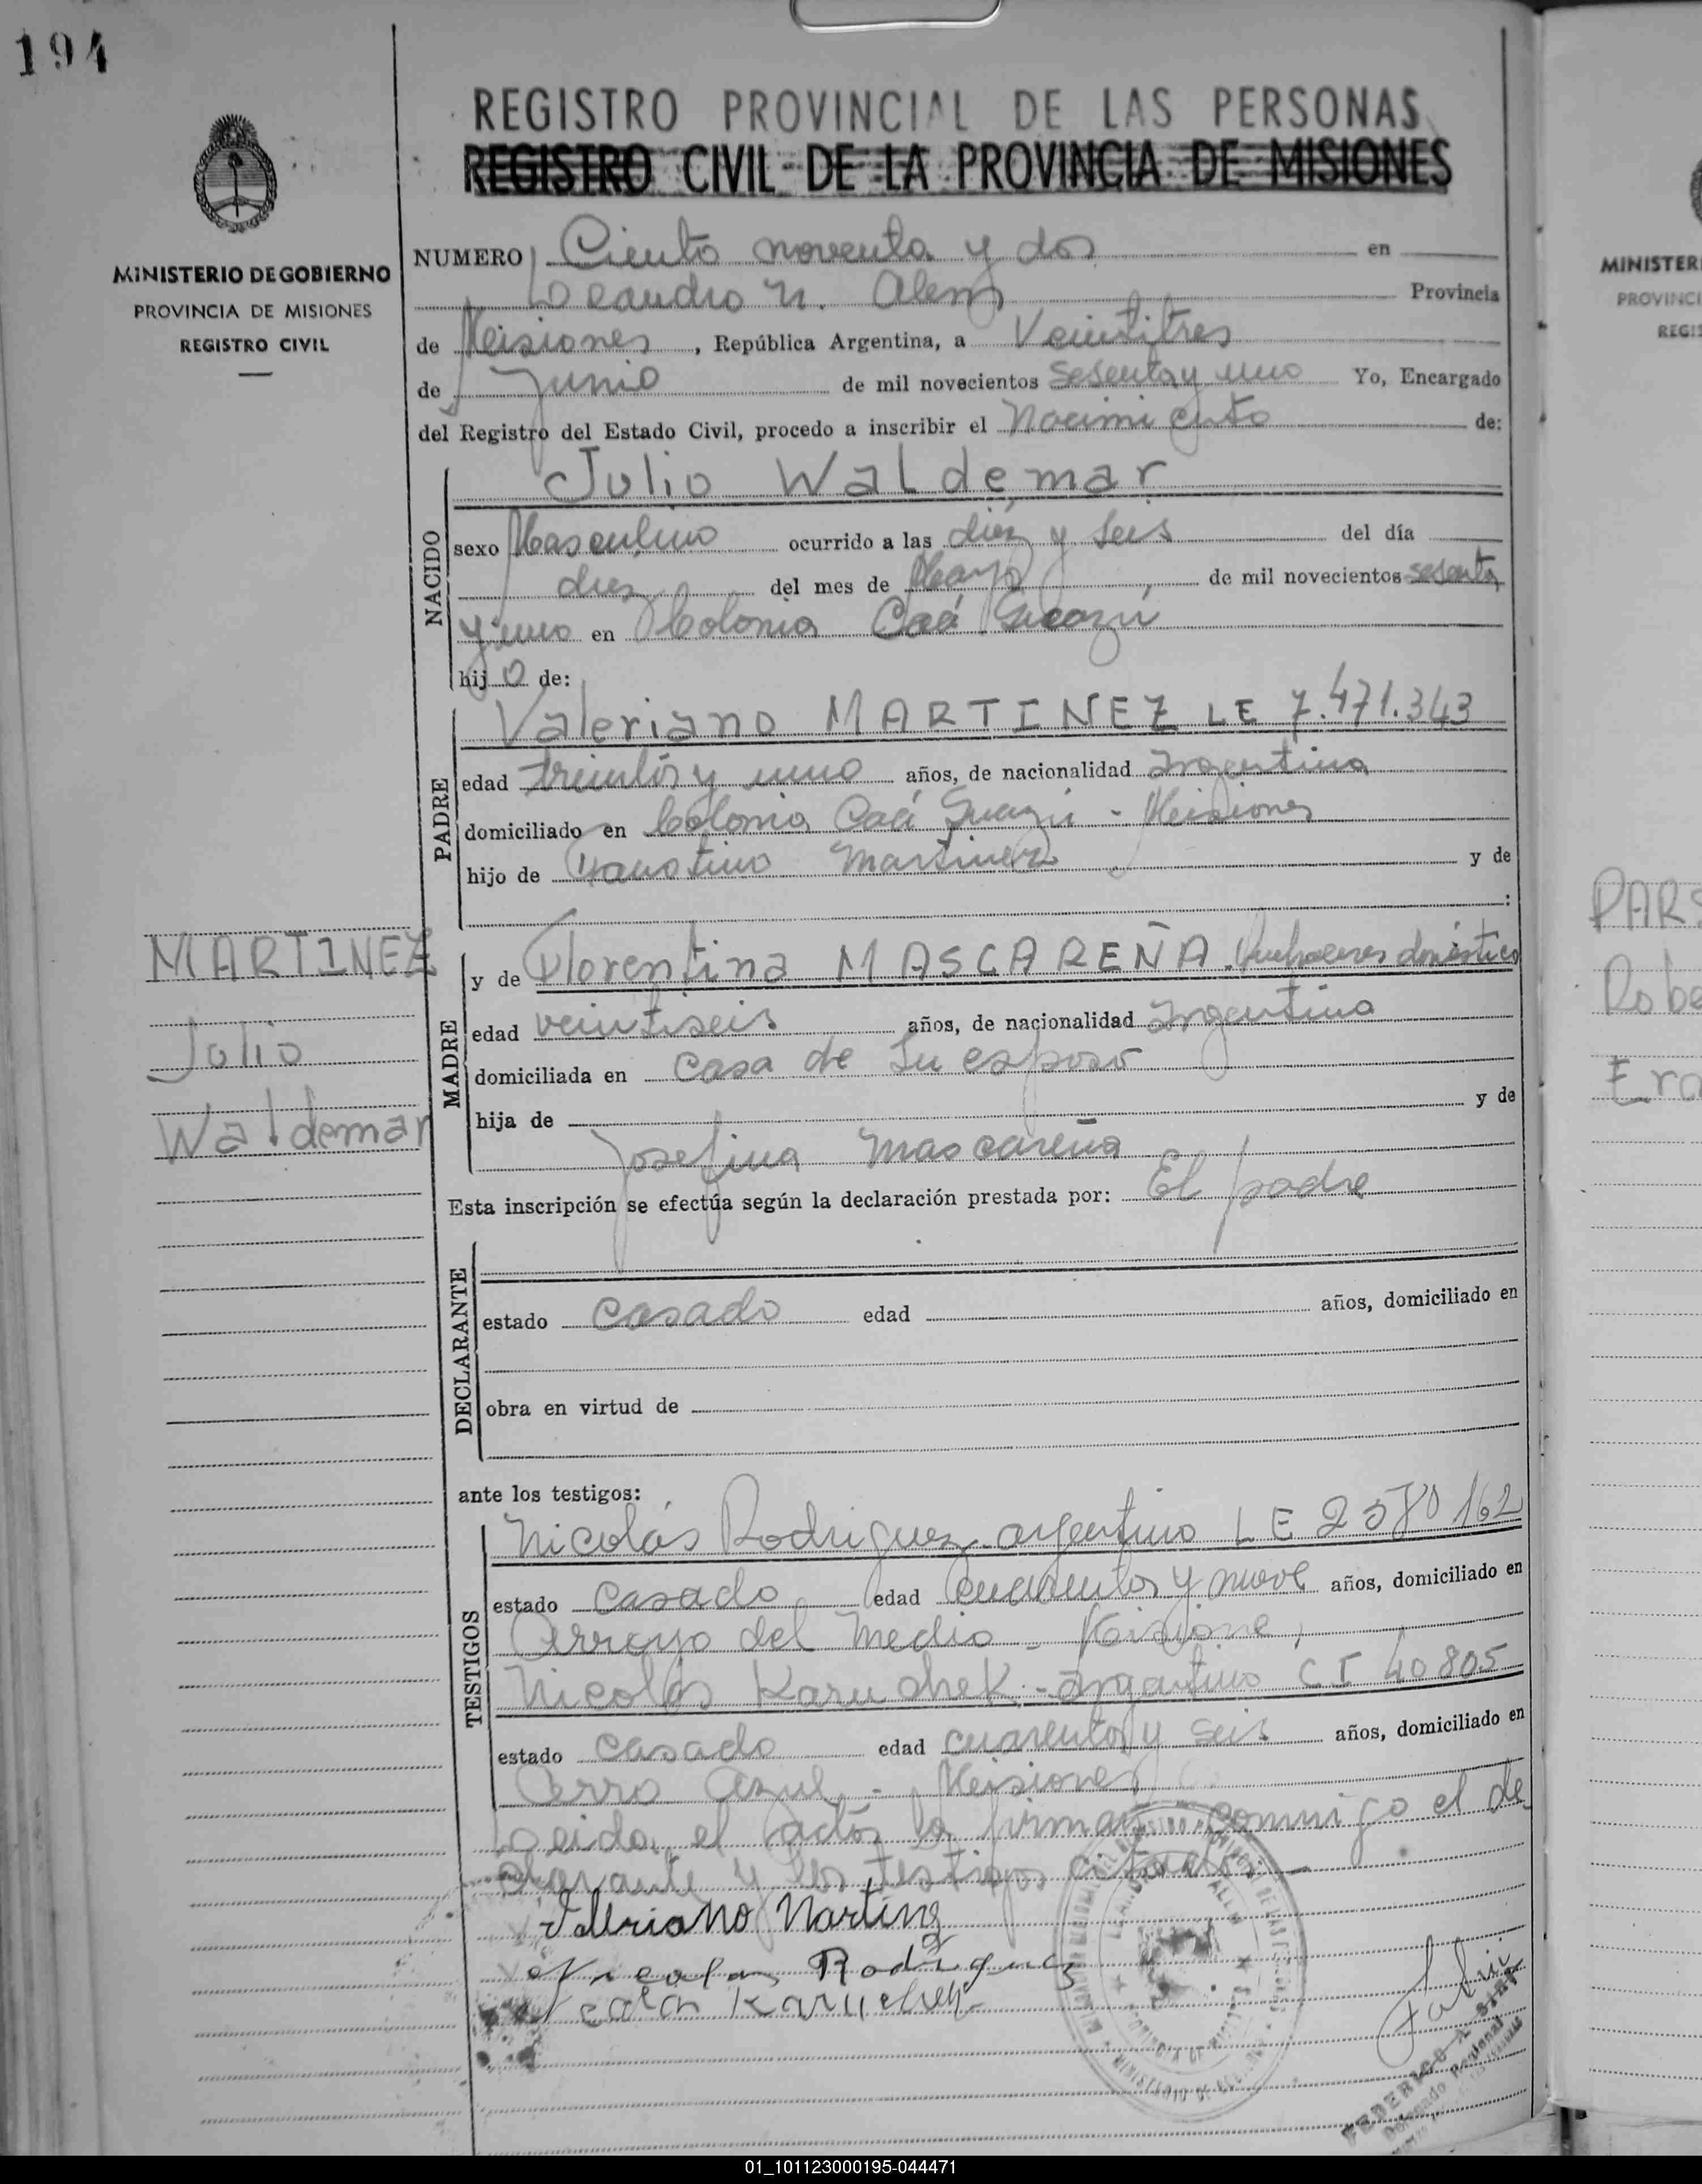 194
REGISTRO PROVINCIAL DE LAS PERSONAS
REGISTRO CIVIL DE LA PROVINCIA DE MISIONES
MINISTERIO DE GOBIERNO
PROVINCIA DE MISIONES
REGISTRO CIVIL
NUMERO Ciento noventa y dos en
Leandro N. Alem Provincia
de Misiones, República Argentina, a Veintitres
de Junio de mil novecientos sesenta y uno Yo, Encargado
del Registro del Estado Civil, procedo a inscribir el Nacimiento de:
NACIDO
Julio Waldemar
sexo Masculino ocurrido a las diez y seis del día
diez del mes de Mayo de mil novecientos sesenta
y uno en Colonia Caá Guazú
hijo de:
PADRE
Valeriano MARTINEZ LE 7.471.343
edad treinta y uno años, de nacionalidad argentina
domiciliado en Colonia Caá Guazú - Misiones
hijo de Faustino Martinez y de
:
MARTINEZ
Julio
Waldemar
MADRE
y de Florentina MASCAREÑA. Quehaceres doméstico
edad veintiseis años, de nacionalidad argentina
domiciliada en casa de su esposo
hija de y de
Josefina Mascareña
Esta inscripción se efectúa según la declaración prestada por: El padre
DECLARANTE
estado casado edad años, domiciliado en
obra en virtud de
ante los testigos:
TESTIGOS
Nicolás Rodriguez argentino LE 2580162
estado casado edad cuarenta y nueve años, domiciliado en
Arroyo del Medio - Misiones,
Nicolás Karuchek - argentino CI 40805
estado casado edad cuarenta y seis años, domiciliado en
Cerro Azul - Misiones
Leida el acta, la firman conmigo el de
clarante y los testigos citados.
Valeriano Martinz
Nicolas Rodriguez
Nicolas Karuchek
FEDERICO
Delegado Regional
MINISTER
PROVINCI
REGIS
PARS
Robe
Era
01_101123000195-044471